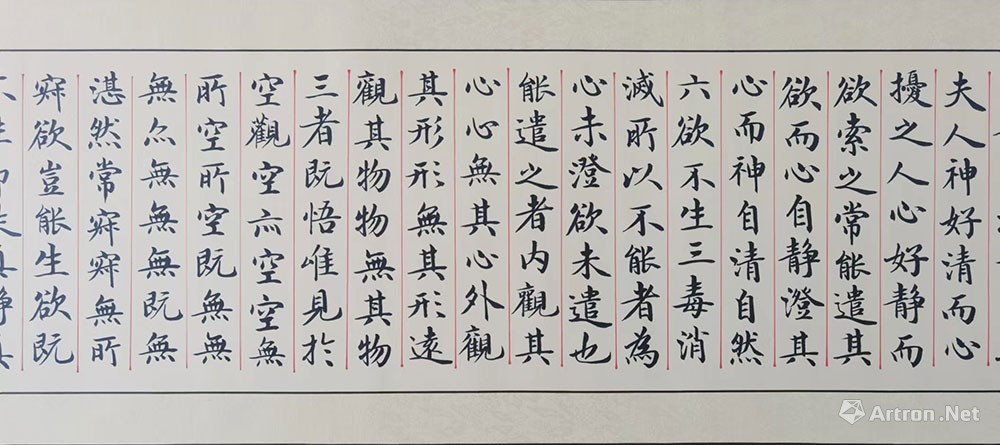 夫人神好清而心
擾之人心好静而
欲索之常能遣其
欲而心自静澄其
心而神自清自然
六欲不生三毒消
滅所以不能者為
心未澄欲未遣也
能遣之者内觀其
心心無其心外觀
其形形無其形遠
觀其物物無其物
三者既悟惟見於
空觀空亦空空無
所空所空既無無
無亦無無無既無
湛然常寂寂無所
寂欲豈能生欲既
Artron.Net